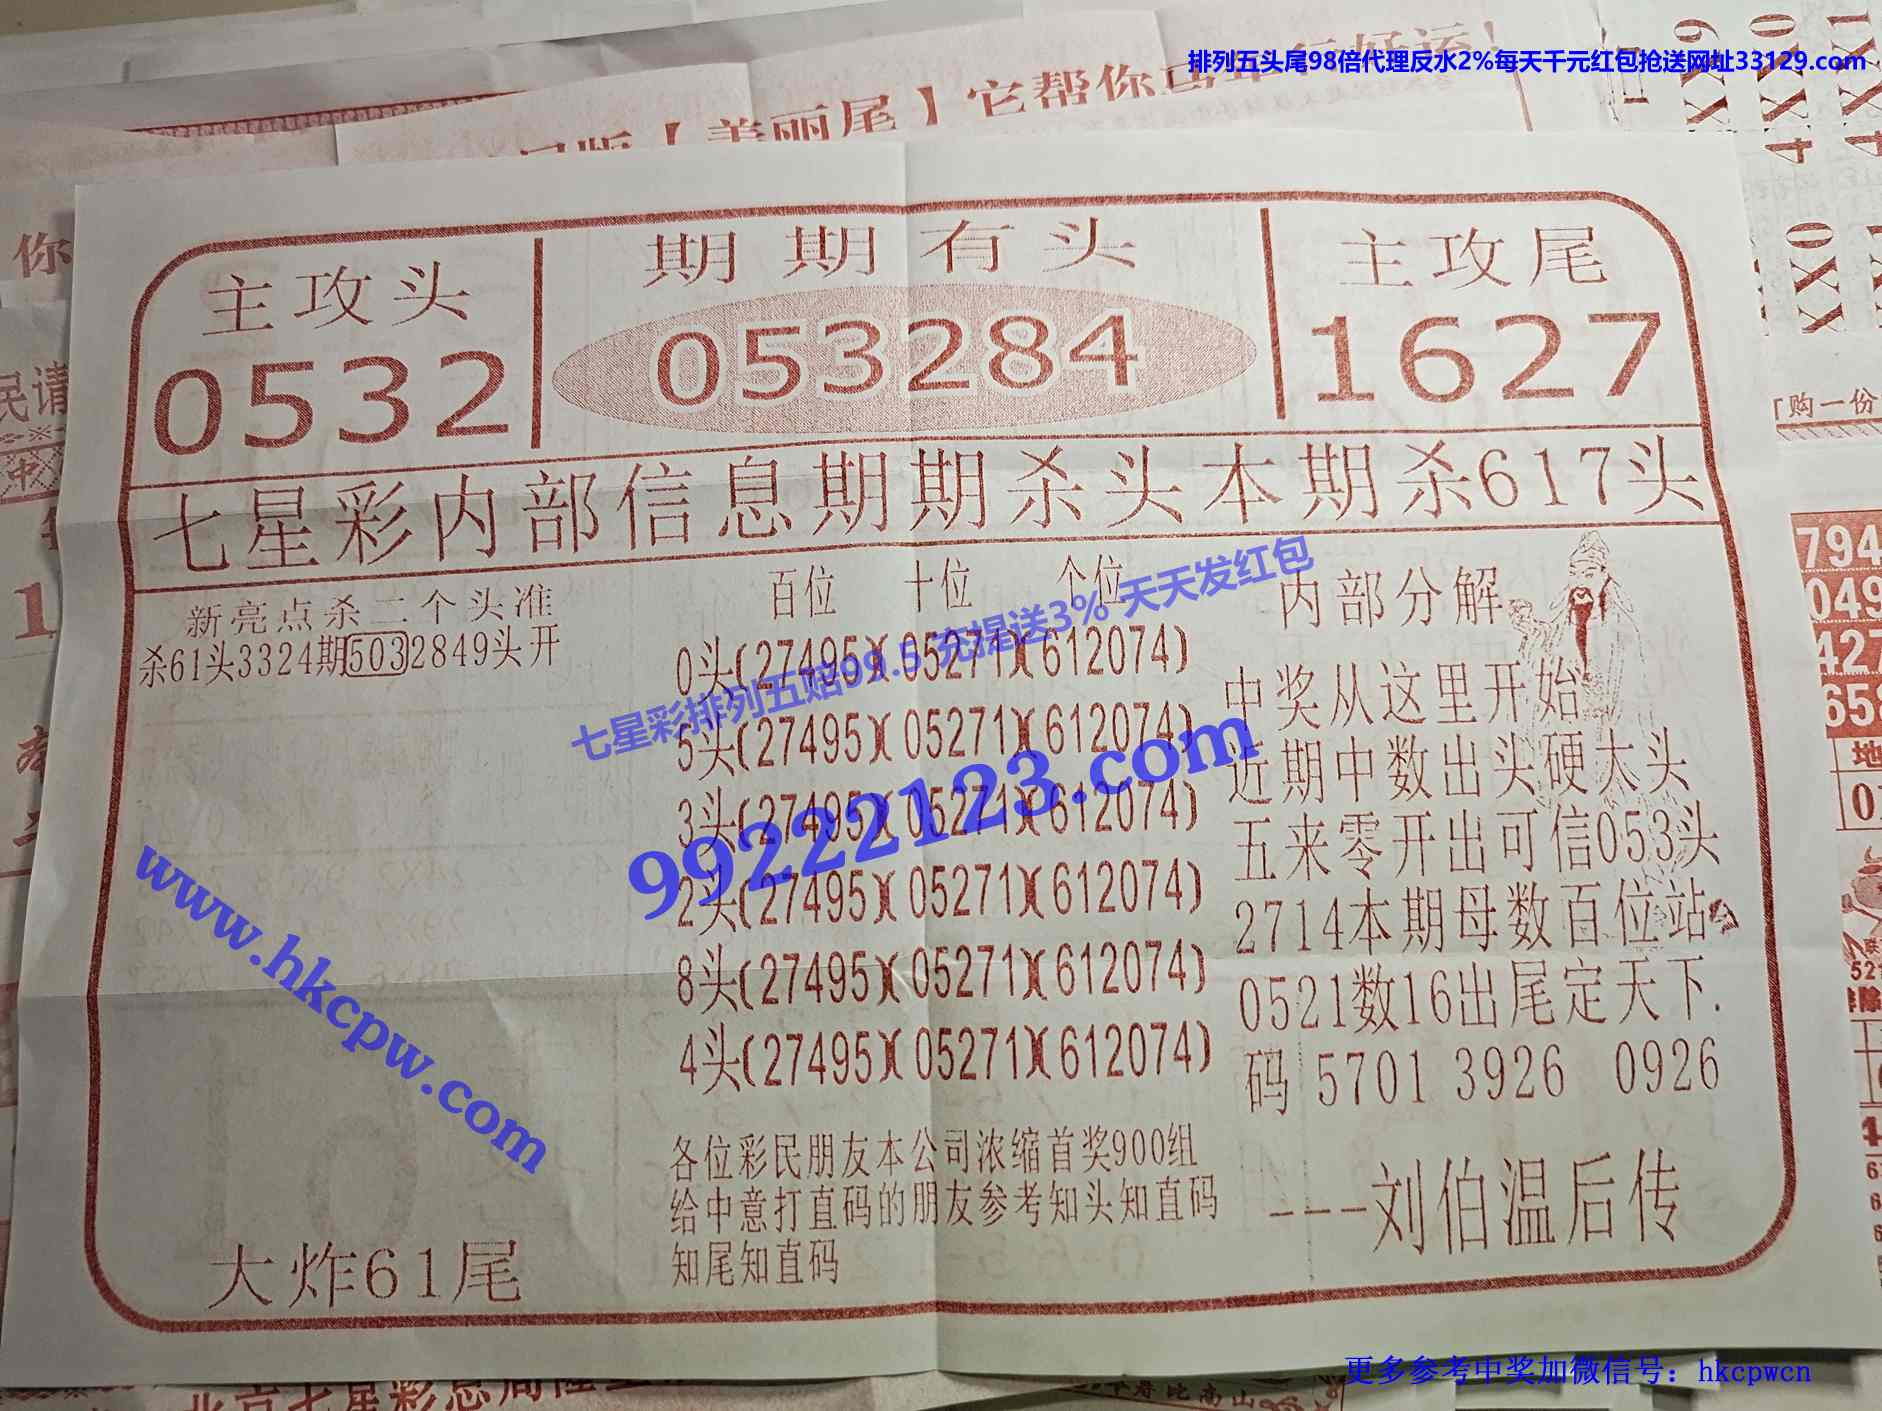 排列五头尾98倍代理反水2%每天千元红包抢送网址33129.com
【美丽尾】它帮你
主攻头
0532
期期有头
053284
主攻尾
1627
七星彩内部信息期期杀头本期杀617头
新亮点杀二个头准
杀61头3324期5032849头开
大炸61尾
百位 十位 个位
0头(27495)(05271)(612074)
5头(27495)(05271)(612074)
3头(27495)(05271)(612074)
2头(27495)(05271)(612074)
8头(27495)(05271)(612074)
4头(27495)(05271)(612074)
各位彩民朋友本公司浓缩首奖900组
给中意打直码的朋友参考知头知直码
知尾知直码
内部分解
中奖从这里开始
近期中数出头硬大头
五来零开出可信053头
2714本期母数百位站
0521数16出尾定天下.
码 5701 3926 0926
---刘伯温后传
七星彩排列五赔99.5 充提送3% 天天发红包
99222123.com
www.hkcpw.com
「购一份
794
049
427
658
地
更多参考中奖加微信号：hkcpwcn